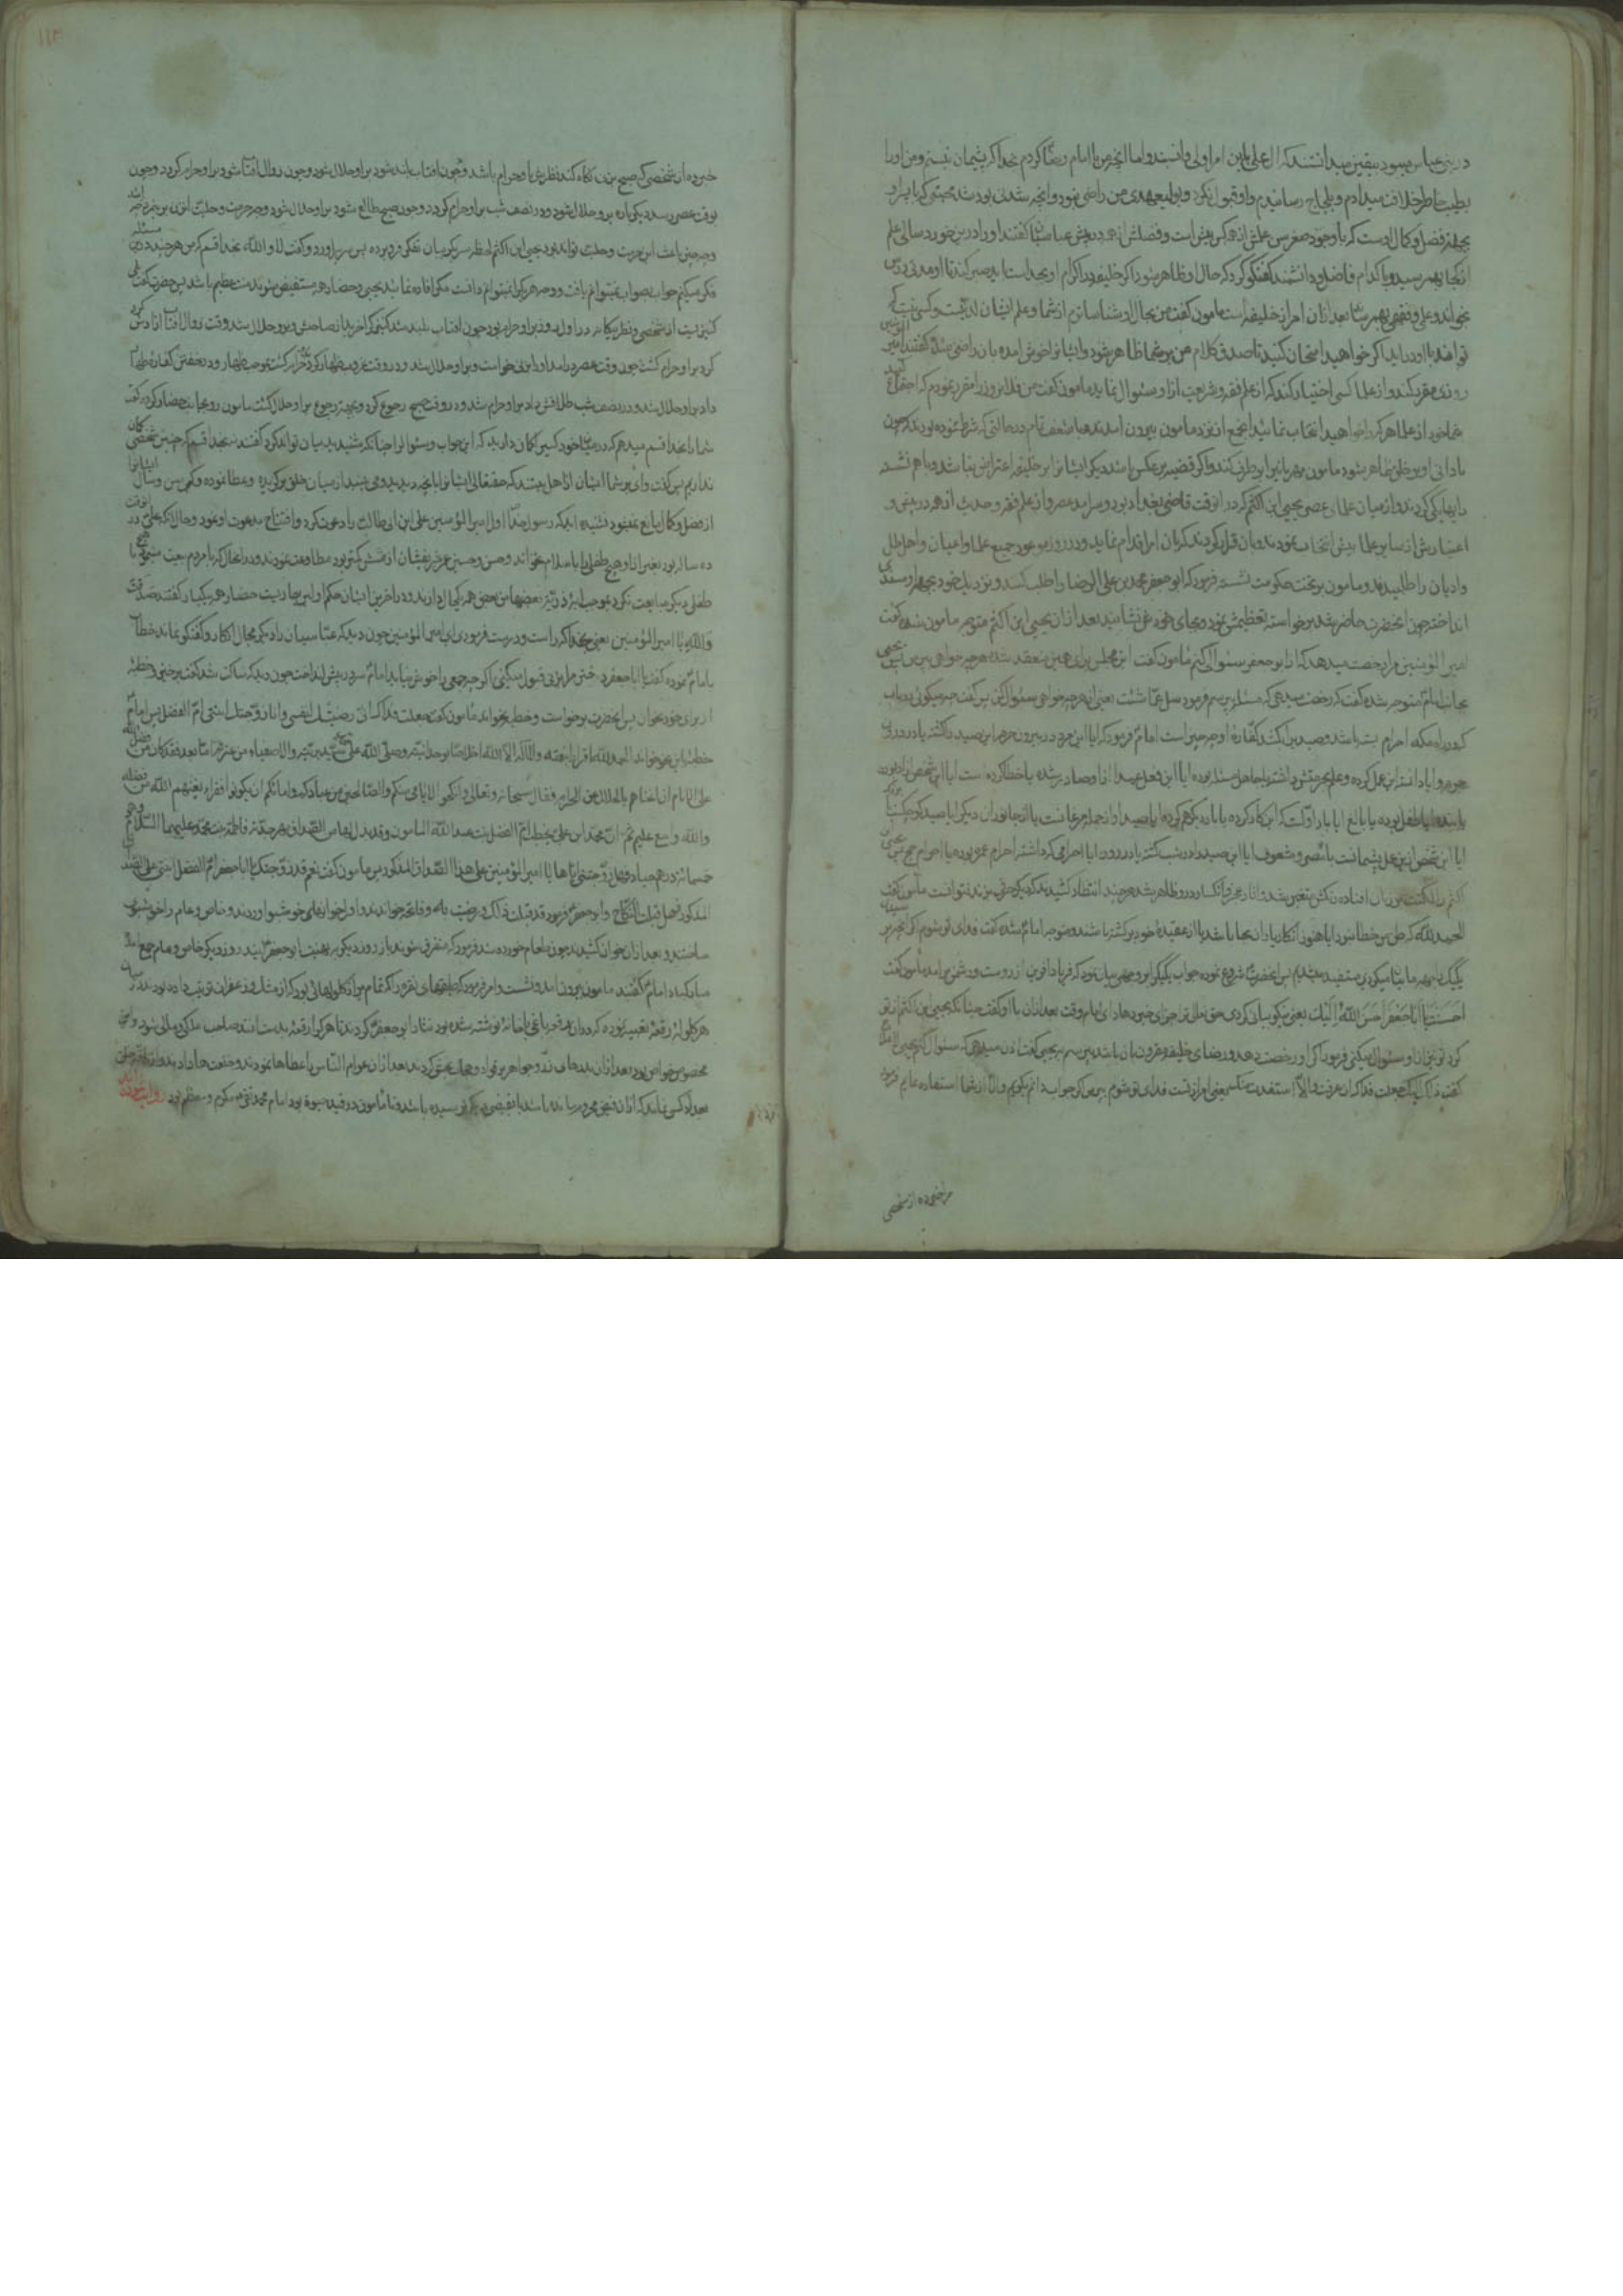 در بنی عباس بیقین میدانستند که ال علی باین امر اولی و انسبند و اما انچه من با امام رضا کردم بخدا که پشیمان نیستم و من او را
بطیب خاطر خلافت میدادم و او قبول نکرد و بولیعهدی من راضی نمود و انچه شدنی بود شد
بجهة فضل و کمال اوست که با وجود صغر سن علمش از همه کس بیش است و فضلش از همه در پیش عباسیان گفتند او را درین خورد سالی علم
از کجا بهم رسید و با کدام فاضل و دانشمند گفتگو کرد که حال او ظاهر شود اگر خلیفه را اکرام او بخداست باید صبر کند تا او مدتی درس
بخواند و علمی و فقهی بهم رساند بعد از ان امر از خلیفه است مامون گفت من بحال او شناساترم از شما و علم ایشان لدنیست و کسی نیست که
توانند با او در اید اگر خواهید امتحان کنید تا صدق کلام من بر شما ظاهر شود و ایشانرا خوش امده بان راضی شدند گفتند امیر المؤمنین
روزی مقرر کند و از علما کسی اختیار کند که از علم فقه و شریعت از او سئوال نماید مامون گفت من فلان روز را مقرر نمودم که اجتماع کنید
شما خود از علما هر که را خواهید انتخاب نمائید انجمع از نزد مامون بیرون امدند
نادانی او بر خلق ظاهر شود مامون مهربانی را بر طرف کند و اگر قضیه بر عکس باشد دیگر ایشانرا بر خلیفه اعتراض نباشد و باهم نشسته
رایها یکی کردند و از میان علمای عصر یحیی ابن اکثم که در انوقت قاضی بغداد بود و سرامد عصر و از علم فقه و حدیث از همه در پیش و
اعتبارش از سایر علما بیش انتخاب نمودند و بان قرار کردند که بان امر اقدام نماید و در روز موعود جمیع علما و اعیان و اهل ملل
و ادیان را طلبیدند و مامون بر تخت حکومت نشسته فرمود که ابو جعفر محمد بن علی الرضا را طلب کنند و نزدیک خود بجهة او مسندی
انداخته چون انحضرت حاضر شد برخواسته تعظیمش نمود و بجای خودش نشانید بعد از ان یحیی ابن اکثم متوجه مامون شده گفت
امیر المؤمنین مرا رخصت میدهد که از ابو جعفر سئوالی کنم مامون گفت این مجلس برای همین منعقد شده هر چه خواهی بپرس پس یحیی
بجانب امام متوجه شده گفت که رخصت میدهی که مسئله بپرسم فرمود سل عما شئت یعنی از هر چه خواهی سئوال کن پس گفت چه میگوئی در باب
که در راه مکه احرام بسته باشد و صید بر او کشد کفارۀ او چه چیز است امام فرمود که ایا این مرد در بیرون حرم این صید را کشته یا در درون
حرم و ایا دانسته این عمل کرده و علم بحرمتش داشته یا جاهل مسئله بوده ایا این فعل عمدا از او صادر شده یا خطا کرده است ایا این شخص ازاد بوده
یا بنده ایا طفل بوده یا بالغ ایا بار اولست که این کار کرده یا بار دیگر هم کرده ایا صید او از جمله مرغانست یا از جانوران دیگر ایا صید کوچک یا
ایا این شخص از عمل پشیمانست یا مصر و مشعوف ایا این صید را در شب کشته یا در روز ایا احرامی که داشته احرام عمره بوده یا احرام حج پس یحیی
اکثم را لکنت بزبان افتاده رنگش متغیر شد و اثار عجز و انکسار در او ظاهر شد هر چند انتظار کشیدند که دیگر حرفی بزند نتوانست مامون گفت
الحمد لله که ظن من خطا نبود ایا هنوز انکار یاران بجا باشد یا از عقیدۀ خود برگشته باشند و متوجه امام شده گفت فدای تو شوم اگر انچه پرسیدند
یک بیک بجهة ما بیان میکردی مستفید میشدیم پس انحضرت شروع نموده جواب یک یک را بر وجهی بیان نمود که فریاد افرین از دوست و دشمن برامد مامون گفت
احسنت یا ابا جعفر احسن الله الیک یعنی نیکو بیان کردی حق تعالی ترا جزای خیر دهاد ای امام وقت بعد از ان باو گفت چنانکه یحیی ابن اکثم از تو
کرد تو نیز از او سئوال میکنی فرمود اگر او رخصت دهد و رضای خلیفه مقرون بان باشد بپرسم به یحیی گفت اذن میدهی که سئوال کنم یحیی
گفت ذاک الیک جعلت فداک ان عرفت و الا استفدت منک یعنی امر از تست فدای تو شوم بپرس اگر جواب دانم بگویم و الا از شما استفاده نمایم فرمود
مرا خبر ده از شخصی
خبر ده از شخصی که صبح بزنی نگاه کند نظرش باو حرام باشد و چون افتاب بلند شود بر او حلال شود و چون زوال افتاب شود بر او حرام گردد و چون
بوقت عصر رسد دیگر باره بر او حلال شود و در نصف شب بر او حرام گردد و چون صبح طالع شود بر او حلال شود وجه حرمت و حلیت این زن بر این مرد چه باشد
و چه چیز باعث این حرمت و حلیت تواند بود یحیی ابن اکثم لحظه سر بگریبان تفکر فرو برده پس سر براورد و گفت لا و الله بخدا قسم که من هر چند درین مسئله
فکر میکنم جواب بصواب نمیتوانم یافت و وجه هر یک را نمیتوانم دانست مگر افاده نمائید یحیی و حضار همه مستفیض شوند منت عظیم باشد پس حضرت گفت
کنیزیست از شخصی و نظر بیگانه در اول روز بر او حرام بود چون افتاب بلند شد کنیزک را خرید از صاحبش و بر او حلال شد وقت زوال افتاب ازادش کرد
کرد بر او حرام گشت چون وقت عصر درامد او را بزنی خواست و بر او حلال شد و در وقت غروب ظهار کرد حرام گشت بموجب ظهار و در خفتن کفارۀ ظهار
داد بر او حلال شد و در نصف شب طلاقش داد بر او حرام شد و در وقت صبح رجوع کرد و بجهة رجوع بر او حلال گشت مامون رو بجانب حضار کرده گفت
شما را بخدا قسم میدهم که در میان خود کسیرا گمان دارید که این جواب و سئوالرا چنانکه شنیدید بیان تواند کرد گفتند نه بخدا قسم که چنین شخصی گمان
نداریم پس گفت وای بر شما ایشان از اهل بیتند که حقتعالی ایشانرا بانچه دیدید و می بینید از میان خلق برگزیده و عطا نموده و کمی سن و سال ایشانرا
از فضل و کمال مانع نمیشود نشنیده اید که رسول خدا اول امیر المؤمنین علی ابن ابی طالب را دعوت کرد و افتتاح بدعوت او نمود و حال انکه علی در انوقت
ده ساله بود بغیر از او هیچ طفلی را باسلام نخواند و حسن و حسین عمر شریفشان از شش کمتر بود مطاوعت نمودند و در انحال که با مردم بیعت مینمود با هیچ
طفلی دیگر مبایعت نکرد بموجب ایۀ ذریة بعضها من بعض همه یک حال دارند و در اخرین ایشان حکم اولین جاریست حضار همه بیکبار گفتند صدقت
و الله یا امیر المؤمنین یعنی بخدا که راست و درست فرمودی ای امیر المؤمنین چون دید که عباسیان را دیگر مجال انکار و گفتگو نماند خطاب
بامام نموده گفت یا ابا جعفر دختر مرا بزنی قبول میکنی اگر چه جمعی را خوش نیاید امام سر در پیش انداخت چون دید که ساکت شد گفت برخیز و خطبه
از برای خود بخوان پس انحضرت برخواست و خطبه بخواند مامون گفت جعلت فداک انی رضیتک لنفسی و انا زوجتک ابنتی ام الفضل پس امام
خطبه باین نحو خواند الحمد لله اقرارا بنعمته و لا اله الا الله اخلاصا لوحدانیته و صلی الله علی محمد سید بریته و الاصفیاء من عترته اما بعد فقد کان من فضل الله
علی الانام ان اغناهم بالحلال عن الحرام فقال سبحانه و تعالی و انکحوا الایامی منکم و الصالحین من عبادکم و امائکم ان یکونوا فقراء یغنیهم الله من فضله
و الله واسع علیم ثم ان محمد ابن علی یخطب ام الفضل بنت عبد الله المامون و قد بذل لها من الصداق مهر جدته فاطمة بنت محمد علیهما السلام و هو
خمسمائة درهم جیاد فهل زوجتنی ایاها یا امیر المؤمنین علی هذا الصداق المذکور پس مامون گفت نعم قد زوجتک یا ابا جعفر ام الفضل ابنتی علی الصداق
المذکور فهل قبلت النکاح و ابو جعفر فرمود قد قبلت ذلک و رضیت به و فاتحه خواندند و اول خوانهای خوشبو اوردند و خاص و عام را خوشبوی
ساختند و بعد از ان خوان کشیدند چون طعام خورده شد فرمود که متفرق شوند باز روز دیگر به تهنیت ابو جعفر ایند روز دیگر خاص و عام جمع امد
مبارکباد امام گفتند مامون بیرون امد و نشست و امر فرمود که طبقهای نقره را که تمام پر از گلولهائی بود که از مشک و زعفران ترتیب داده بودند
هر گلوله رقعۀ تعبیه نموده که در ان ده قریه یا باغی یا خانۀ نوشته شده بود نثار ابو جعفر کردند تا هر که را رقعۀ بدست افتد صاحب ملکی و مالی شود و این
مخصوص خواص بود بعد از ان بدرهای زر و جواهر بر قواد و بعد از ان عوام الناس را عطاها نمودند و خلعت ها دادند
بغداد کسی نماند که از ان فیض محروم مانده باشد یا بفیضی دیگر نرسیده باشد و تا مامون در قید حیوة بود امام محمد تقی مکرم و معظم بود